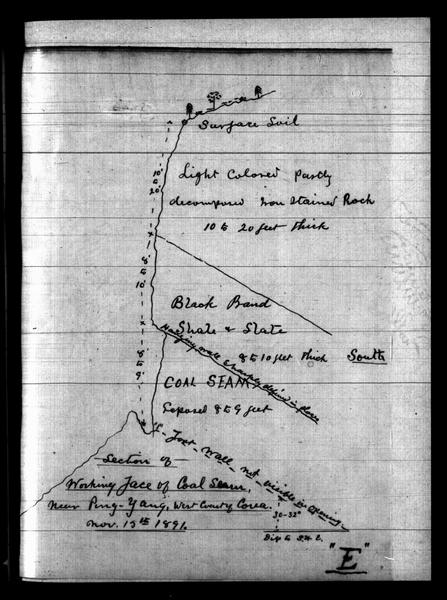 Surface Soil
Light Colored partly
decomposed Iron Stained Rock
10 to 20 feet thick
10'
to
20'
Black Band
Shale & Slate
8 to 10 feet thick
South
8'
to
10'
Hanging wall sharply defined in place
COAL SEAM
Exposed 8 to 9 feet
8'
to
9'
Foot-Wall not visible in opening
Section of
Working Face of Coal Seam,
Near Ping-Yang, West Coast of Corea.
Nov. 13th 1891.
30-32°
Dip to
"E"